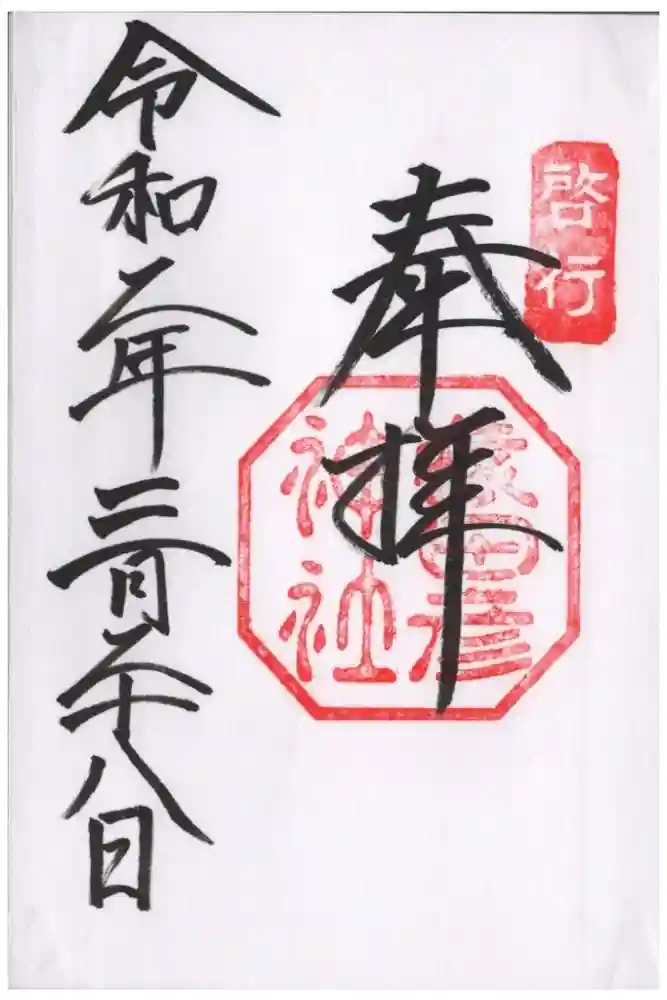 啓行
奉拝
猿田彦
神社
令和二年三月二十八日